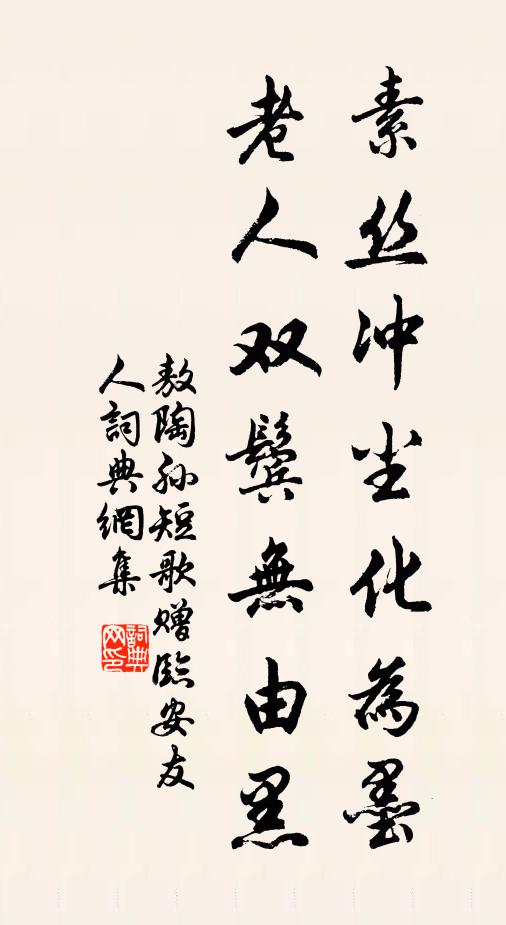 素丝冲尘化為墨
老人双鬓無由黑
敖陶孙短歌赠臨安友
人詞典網集
詞典
网印